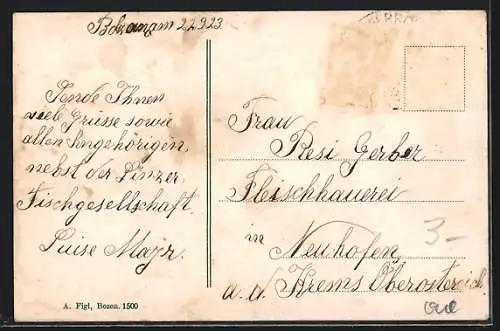 Bolzano am 22.9.23.
Sende Ihnen
viele Grüsse sowie
allen Angehörigen
nebst der Linzer
Tischgesellschaft
Luise Mayr
Frau
Resi Gerber
Fleischhauerei
in
Neuhofen
a. d. Krems Oberösterreich
3-
A. Figl, Bozen. 1500